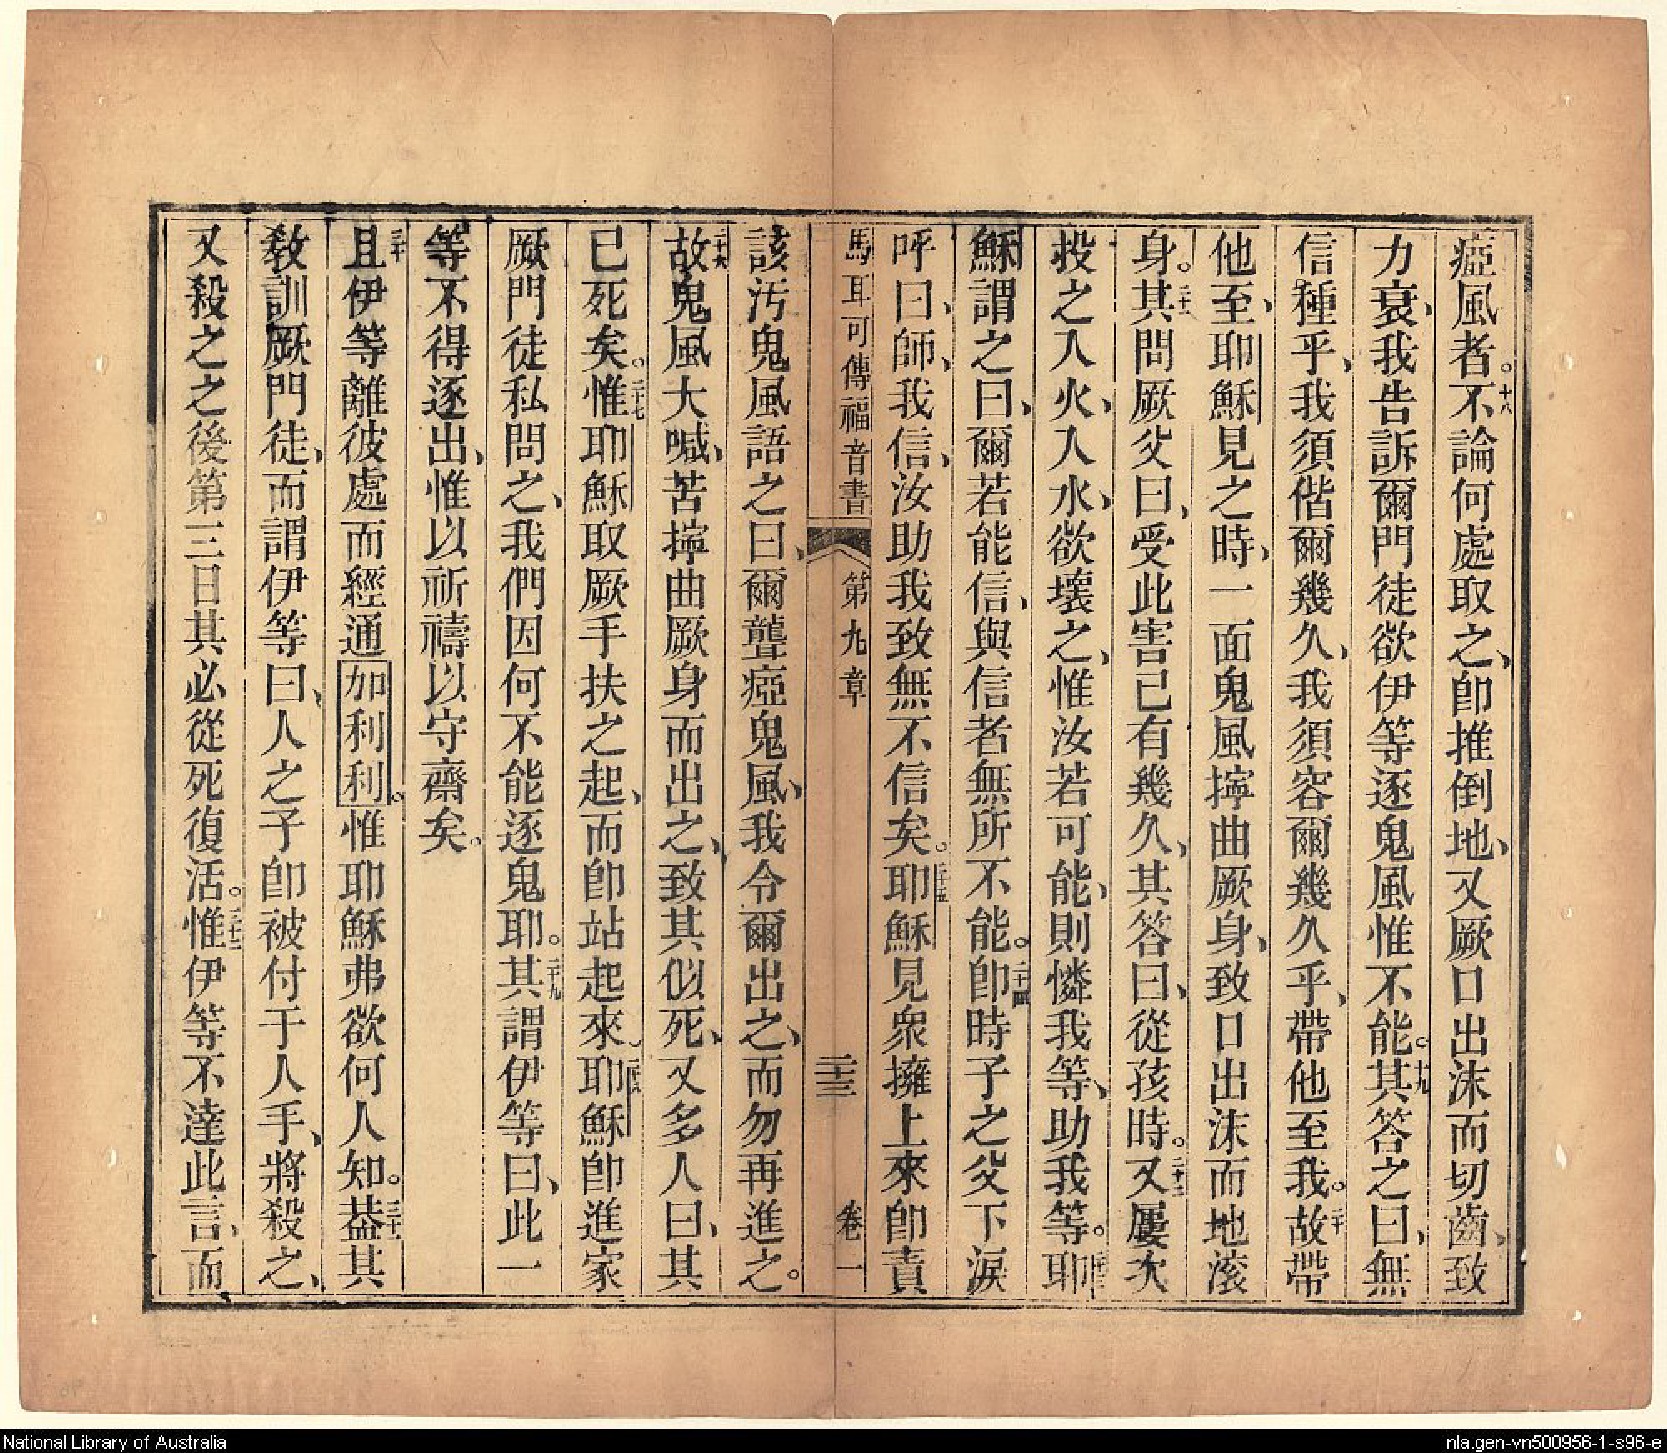 瘂風者。十八不論何處取之、卽推倒地、又厥口出沫而切齒、致
力衰、我告訴爾門徒欲伊等逐鬼風惟不能。十九其答之曰、無
信種乎、我須偕爾幾久、我須容爾幾久乎、帶他至我。二十故帶
他至、耶穌見之時、一面鬼風擰曲厥身、致口出沫而地滚
身。二十一其問厥父曰、受此害已有幾久、其答曰、從孩時。二十二又屢次
投之入火、入水、欲壞之、惟汝若可能、則憐我等、助我等。二十三耶
穌謂之曰、爾若能信、與信者無所不能。二十四卽時子之父下淚
呼曰、師、我信、汝助我致無不信矣。二十五耶穌見衆擁上來卽責
馬耳可傳福音書 第九章 二十三 卷一
該汚鬼風語之曰、爾聾瘂鬼風、我令爾出之、而勿再進之。
二十六故鬼風大喊、苦擰曲厥身而出之、致其似死、又多人曰、其
已死矣。二十七惟耶穌取厥手扶之起、而卽站起來。二十八耶穌卽進家
厥門徒私問之、我們因何不能逐鬼耶。二十九其謂伊等曰、此一
等不得逐出、惟以祈禱以守齋矣。
三十且伊等離彼處而經通加利利。惟耶穌弗欲何人知。三十一葢其
敎訓厥門徒、而謂伊等曰、人之子卽被付于人手、將殺之、
又殺之之後第三日其必從死復活。三十二惟伊等不達此言、而
National Library of Australia
nla.gen-vn500956-1-s96-e